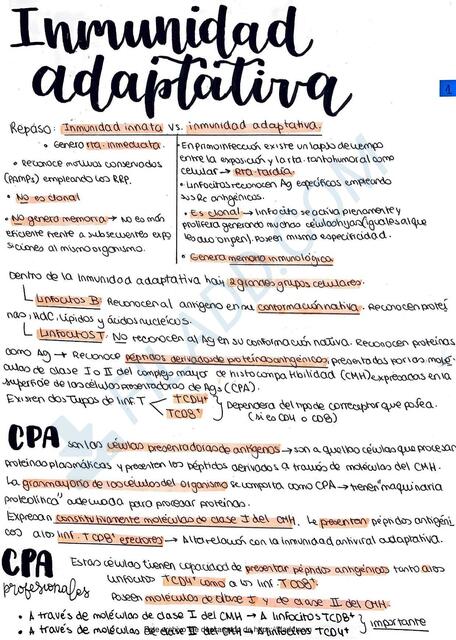 Inmunidad
adaptativa
1
Repaso: Inmunidad innata vs. inmunidad adaptativa.
• Genera rta. inmediata.
• Reconoce motivos conservados
(PAMPs) empleando los RRP.
• No es clonal
• No genera memoria → no es más
eficiente frente a subsecuentes expo
siciones al mismo organismo.
• En primoinfección existe un lapso de tiempo
entre la exposición y la rta. tanto humoral como
celular → Rta tardía.
• Linfocitos reconocen Ag específicos empleando
sus Rc antigénicos.
• Es clonal → linfocito se activa plenamente y
prolifera generando muchas células hijas (iguales al que
les dio origen). Poseen misma especificidad.
• Genera memoria inmunológica.
Dentro de la inmunidad adaptativa hay 2 grandes grupos celulares.
Linfocitos B: Reconocen al antígeno en su conformación nativa. Reconocen proteí
nas, HdC, lípidos y ácidos nucleicos.
Linfocitos T: NO reconocen al Ag en su conformación nativa. Reconocen proteínas
como Ag → Reconoce péptidos derivados de proteínas antigénicas, presentados por las molé-
culas de clase I o II del complejo mayor de histocompatibilidad (CMH) expresadas en la
superficie de las células presentadoras de Ags (CPA).
Existen dos tipos de linf. T
TCD4+
TCD8+
Dependera del tipo de correceptor que posea.
(si es CD4 o CD8)
CPA son las células presentadoras de antígenos → son aquellas células que procesan
proteínas plasmáticas y presentan los péptidos derivados a través de moléculas del CMH.
La gran mayoría de las células del organismo se comporta como CPA → tienen "maquinaria
proteolítica" adecuada para procesar proteínas.
Expresan constitutivamente moléculas de clase I del CMH. Le presentan péptidos antigéni
cos a los linf. TCD8+ efectores → Alta relación con la inmunidad antiviral adaptativa.
CPA
profesionales
Estas células tienen capacidad de presentar péptidos antigénicos tanto a los
linfocitos TCD4+ como a los linf. TCD8+.
Poseen moléculas de clase I y de clase II del CMH.
• A través de moléculas de clase I del CMH → A linfocitos TCD8+
• A través de moléculas de clase II del CMH → A linfocitos TCD4+
importante